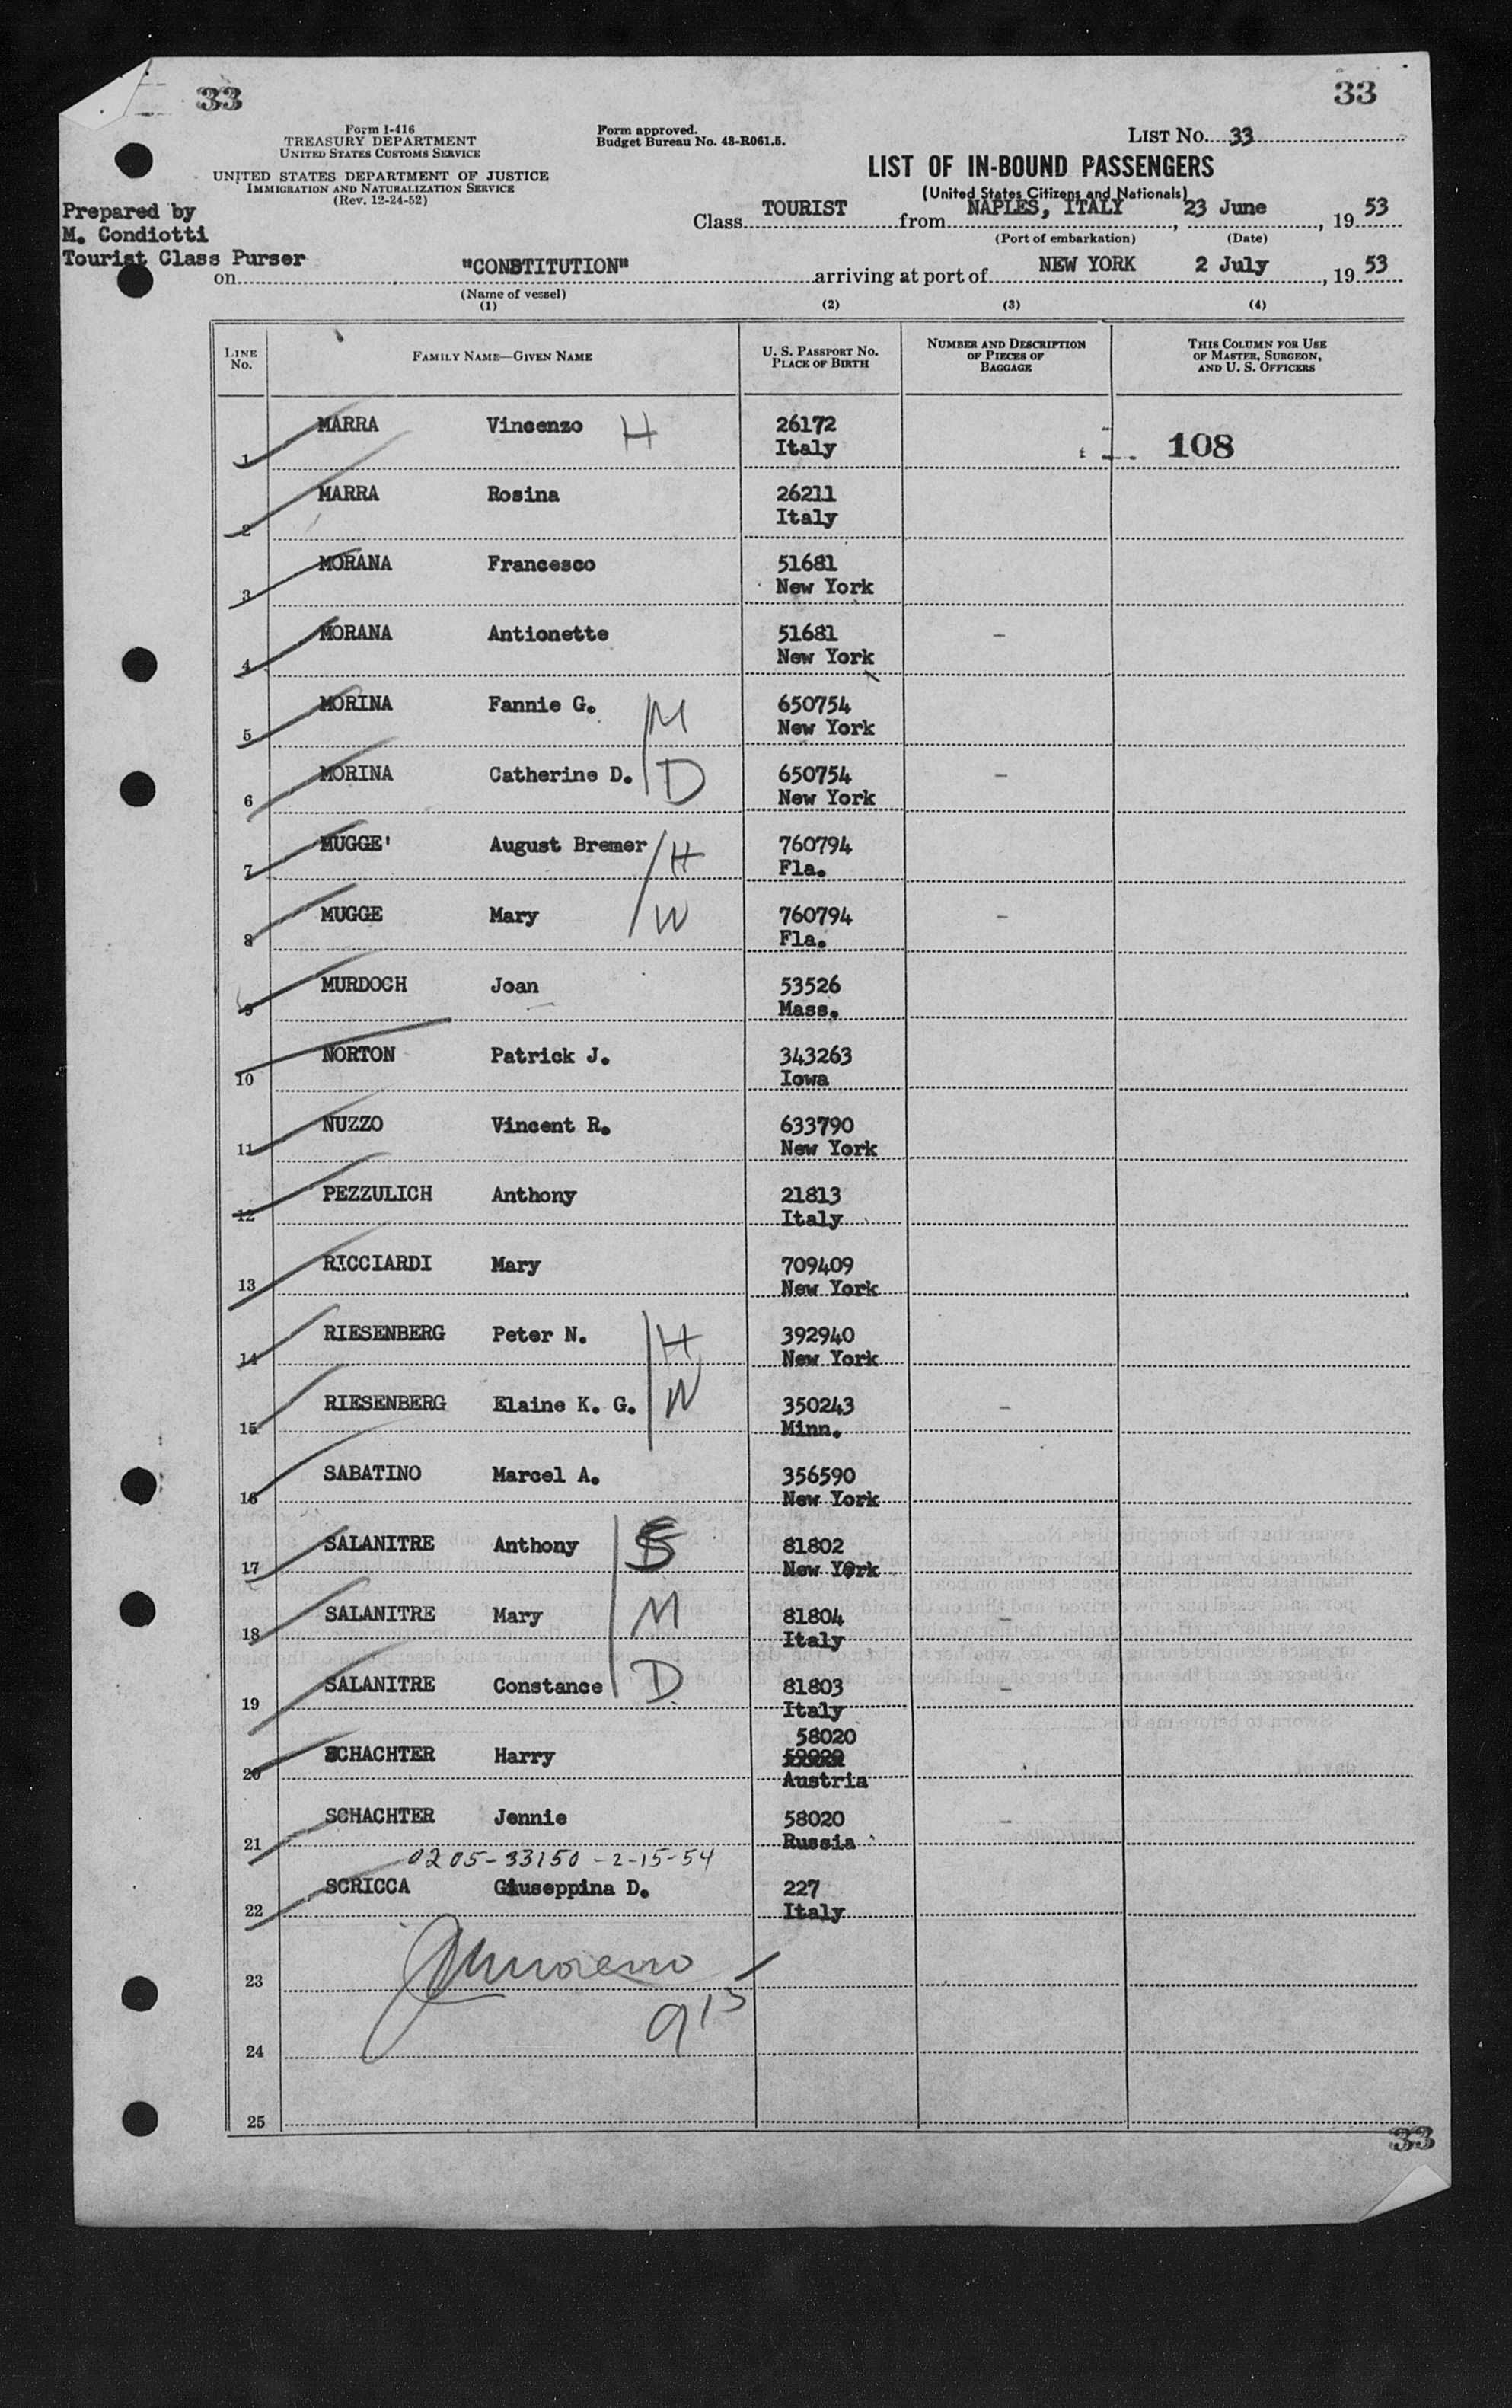 33
33
Form I-416
TREASURY DEPARTMENT
UNITED STATES CUSTOMS SERVICE
UNITED STATES DEPARTMENT OF JUSTICE
IMMIGRATION AND NATURALIZATION SERVICE
(Rev. 12-24-52)
Form approved.
Budget Bureau No. 43-R061.5.
LIST No. 33
LIST OF IN-BOUND PASSENGERS
(United States Citizens and Nationals)
Prepared by
M. Condiotti
Tourist Class Purser
Class TOURIST from NAPLES, ITALY, 23 June, 1953
(Port of embarkation) (Date)
on "CONSTITUTION" arriving at port of NEW YORK 2 July, 1953
(Name of vessel)
(1) (2) (3) (4)
LINE No. FAMILY NAME—GIVEN NAME U. S. PASSPORT No. PLACE OF BIRTH NUMBER AND DESCRIPTION OF PIECES OF BAGGAGE THIS COLUMN FOR USE OF MASTER, SURGEON, AND U. S. OFFICERS
1 MARRA Vincenzo H 26172 Italy 108
2 MARRA Rosina 26211 Italy
3 MORANA Francesco 51681 New York
4 MORANA Antionette 51681 New York -
5 MORINA Fannie G. M 650754 New York
6 MORINA Catherine D. D 650754 New York -
7 MUGGE' August Bremer H 760794 Fla.
8 MUGGE Mary W 760794 Fla. -
9 MURDOCH Joan 53526 Mass.
10 NORTON Patrick J. 343263 Iowa
11 NUZZO Vincent R. 633790 New York
12 PEZZULICH Anthony 21813 Italy
13 RICCIARDI Mary 709409 New York
14 RIESENBERG Peter N. H 392940 New York
15 RIESENBERG Elaine K. G. W 350243 Minn. -
16 SABATINO Marcel A. 356590 New York
17 SALANITRE Anthony S 81802 New York
18 SALANITRE Mary M 81804 Italy -
19 SALANITRE Constance D 81803 Italy -
58020
20 SCHACHTER Harry Austria
21 SCHACHTER Jennie 58020 Russia -
0205-33150-2-15-54
22 SCRICCA Giuseppina D. 227 Italy
23
915
24
25
33